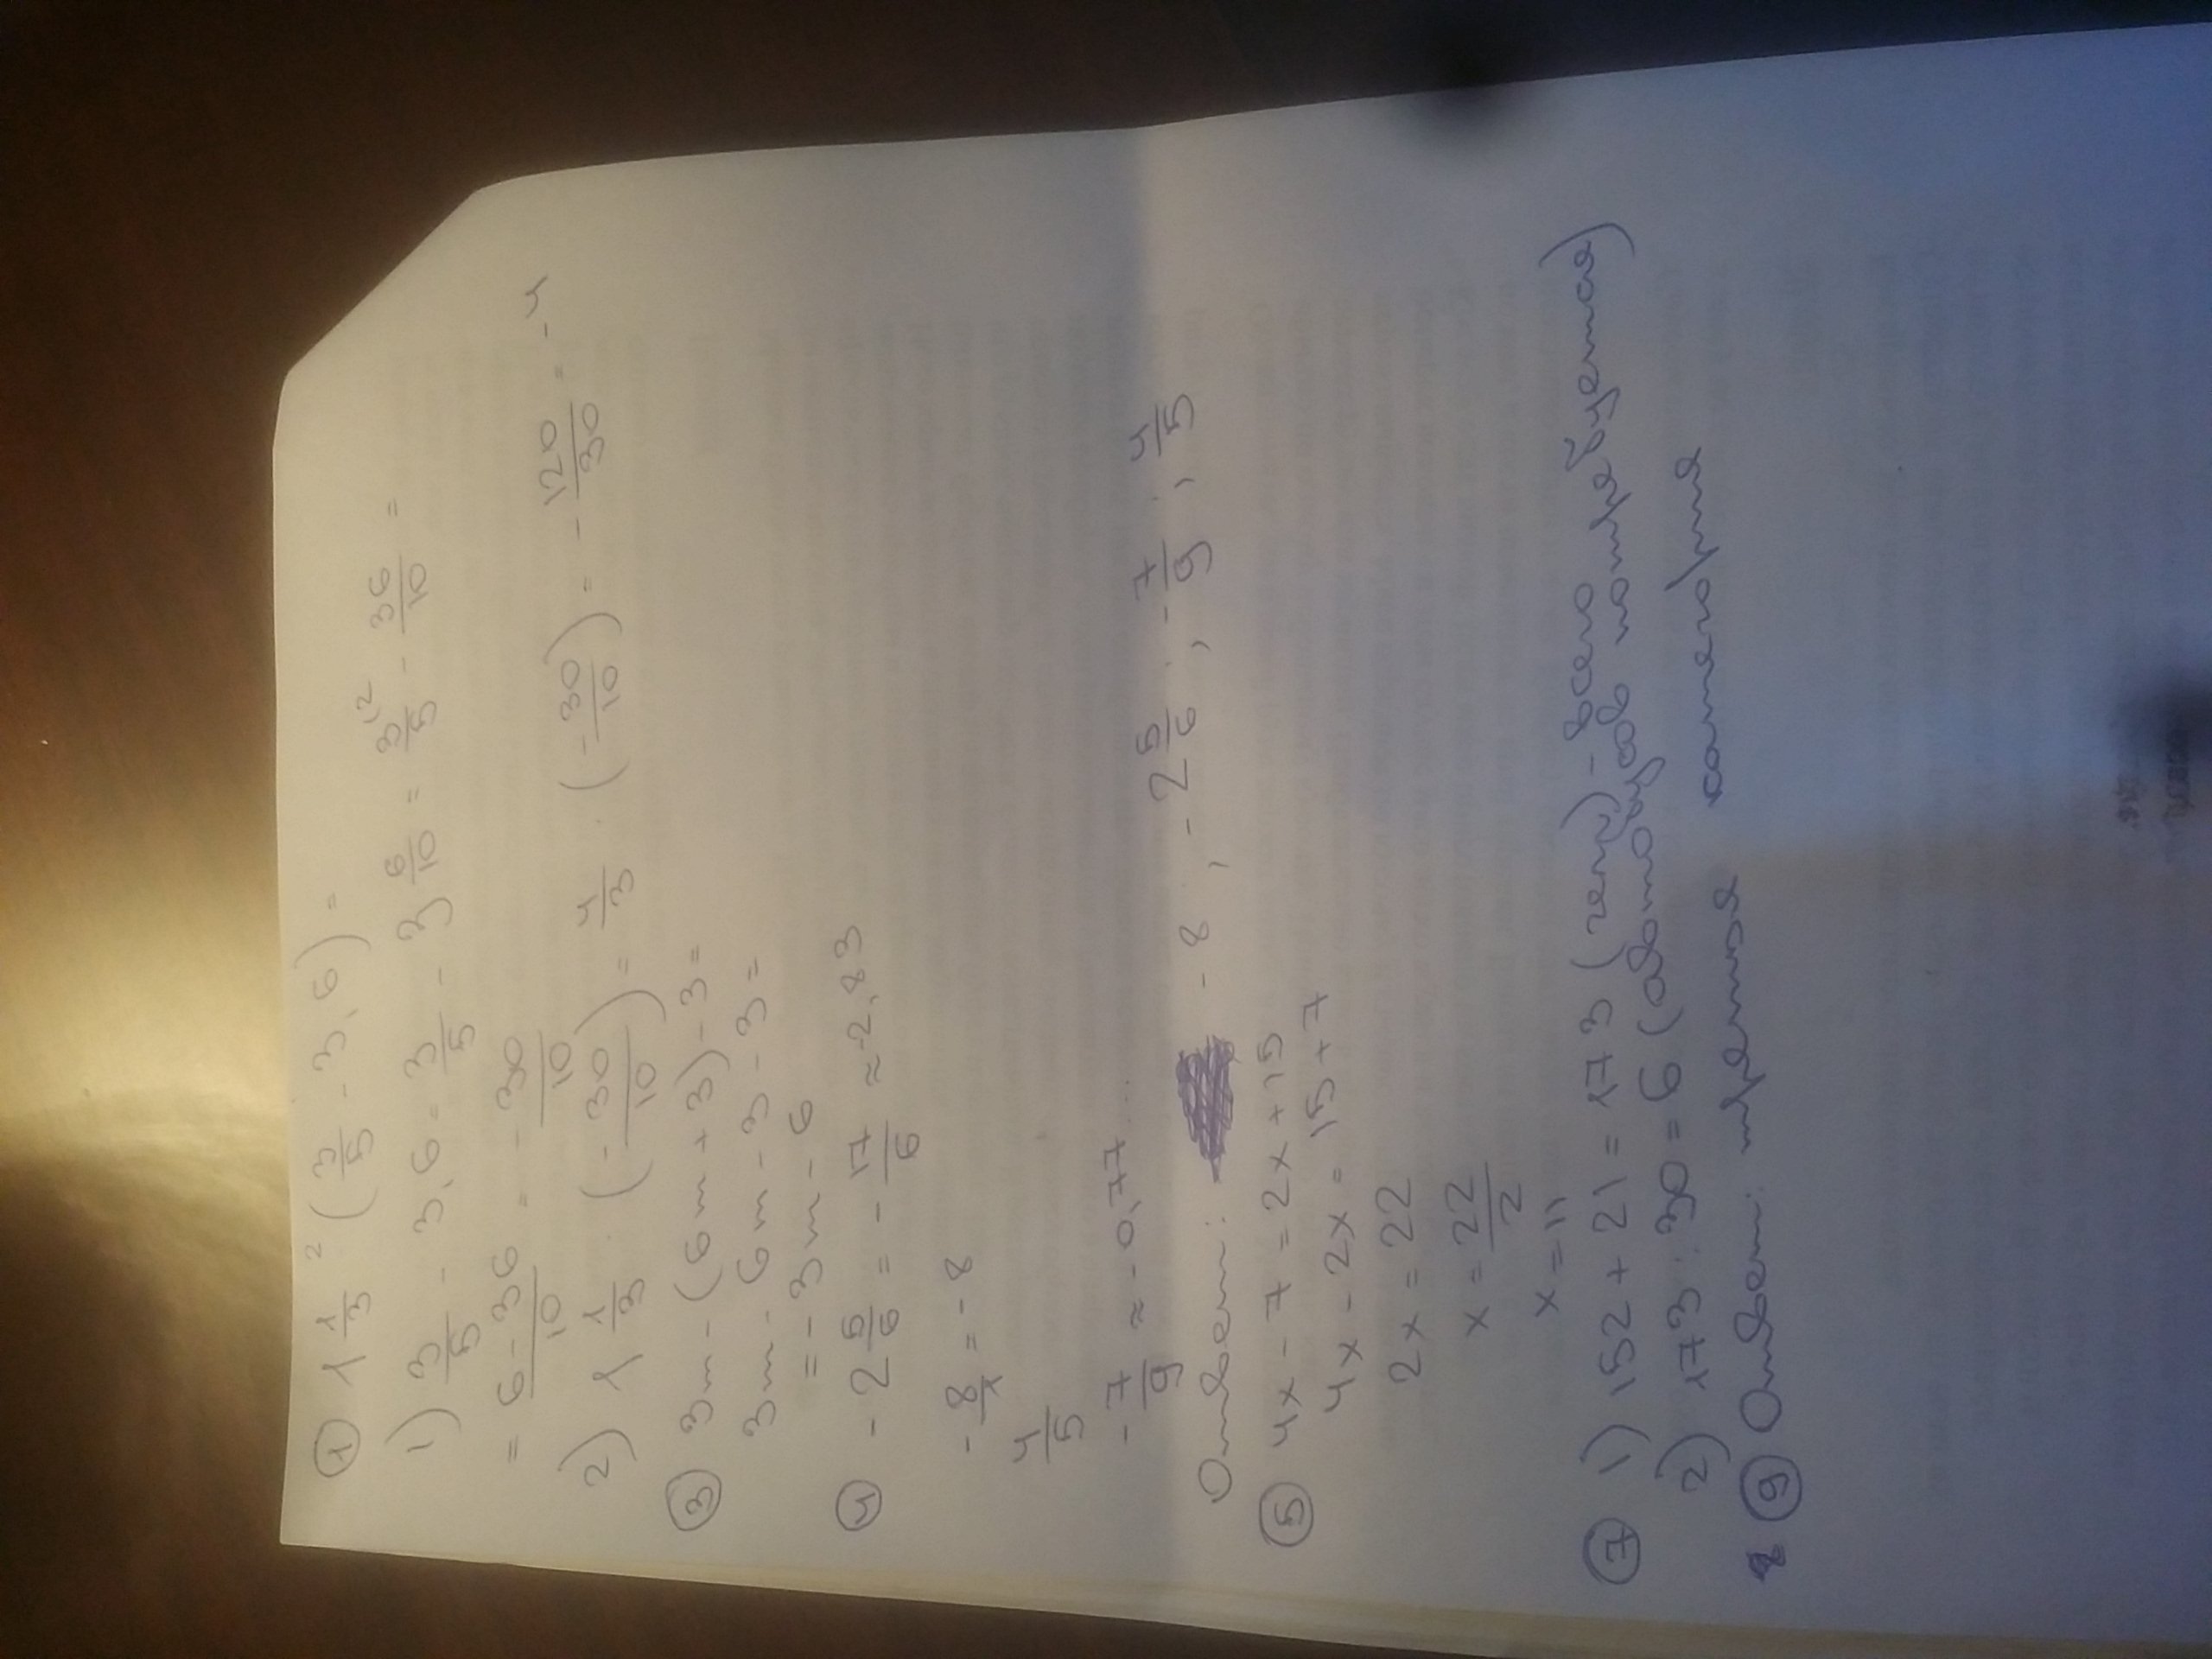 ① 1 1/3 ² (3/5 - 3,6) =
1) 3/5 - 3,6 = 3/5 - 3 6/10 = 3/5 ² - 36/10 =
= 6-36/10 = - 30/10
2) 1 1/3 · (- 30/10) = 4/3 · (- 30/10) = - 120/30 = -4
③ 3m - (6m + 3) - 3 =
3m - 6m - 3 - 3 =
= -3m - 6
④ -2 5/6 = - 17/6 ≈ -2,83
- 8/1 = -8
4/5
- 7/9 ≈ -0,77...
Ответ: -8, -2 5/6, - 7/9, 4/5
⑤ 4x - 7 = 2x + 15
4x - 2x = 15 + 7
2x = 22
x = 22/2
x = 11
⑦ 1) 152 + 21 = 173 (чел) - всего
2) 173 : 30 = 6 (автобусов потребуется)
⑨ Ответ: третья категория